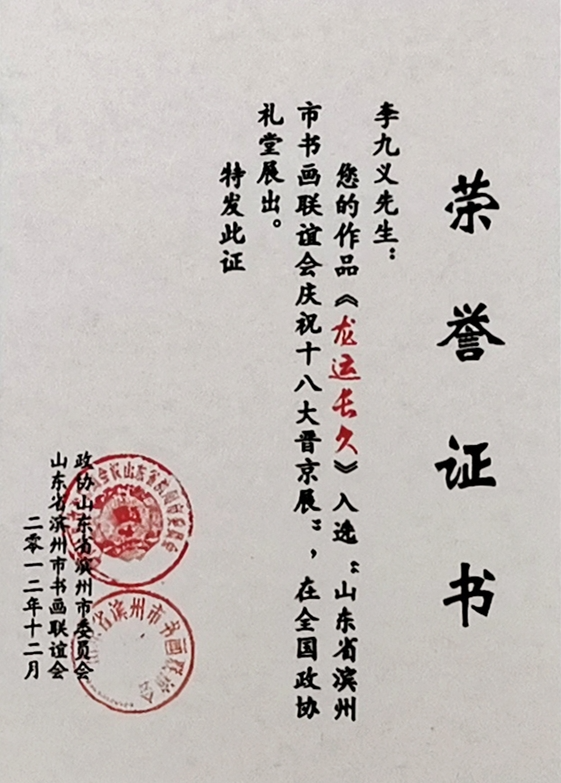 荣誉证书
李九义先生：
您的作品《龙运长久》入选“山东省滨州
市书画联谊会庆祝十八大晋京展”，在全国政协
礼堂展出。
特发此证
政协山东省滨州市委员会
山东省滨州市书画联谊会
二零一二年十二月
省滨州市书画联谊会